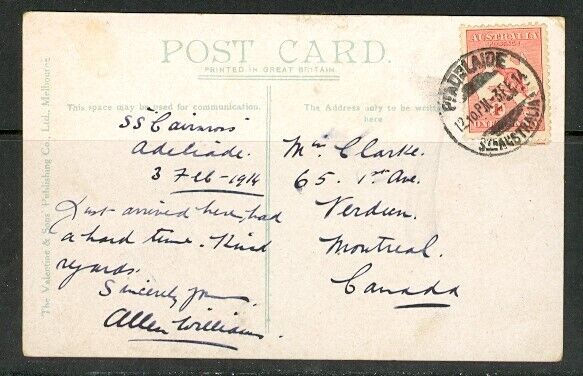 POST CARD.
PRINTED IN GREAT BRITAIN
This space may be used for communication.
The Address only to be written
here
The Valentine & Sons Publishing Co., Ltd., Melbourne
SS Cairnross
Adeliade.
3 Feb - 1914
Just arrived here, had
a hard time. Kind
regards.
Sincerely yours,
Allen Williams.
Clarke.
65. 1st Ave.
Verdun.
Montreal.
Canada
AUSTRALIA
ADELAIDE
12-10 PM-3FE14
STH AUSTRALIA